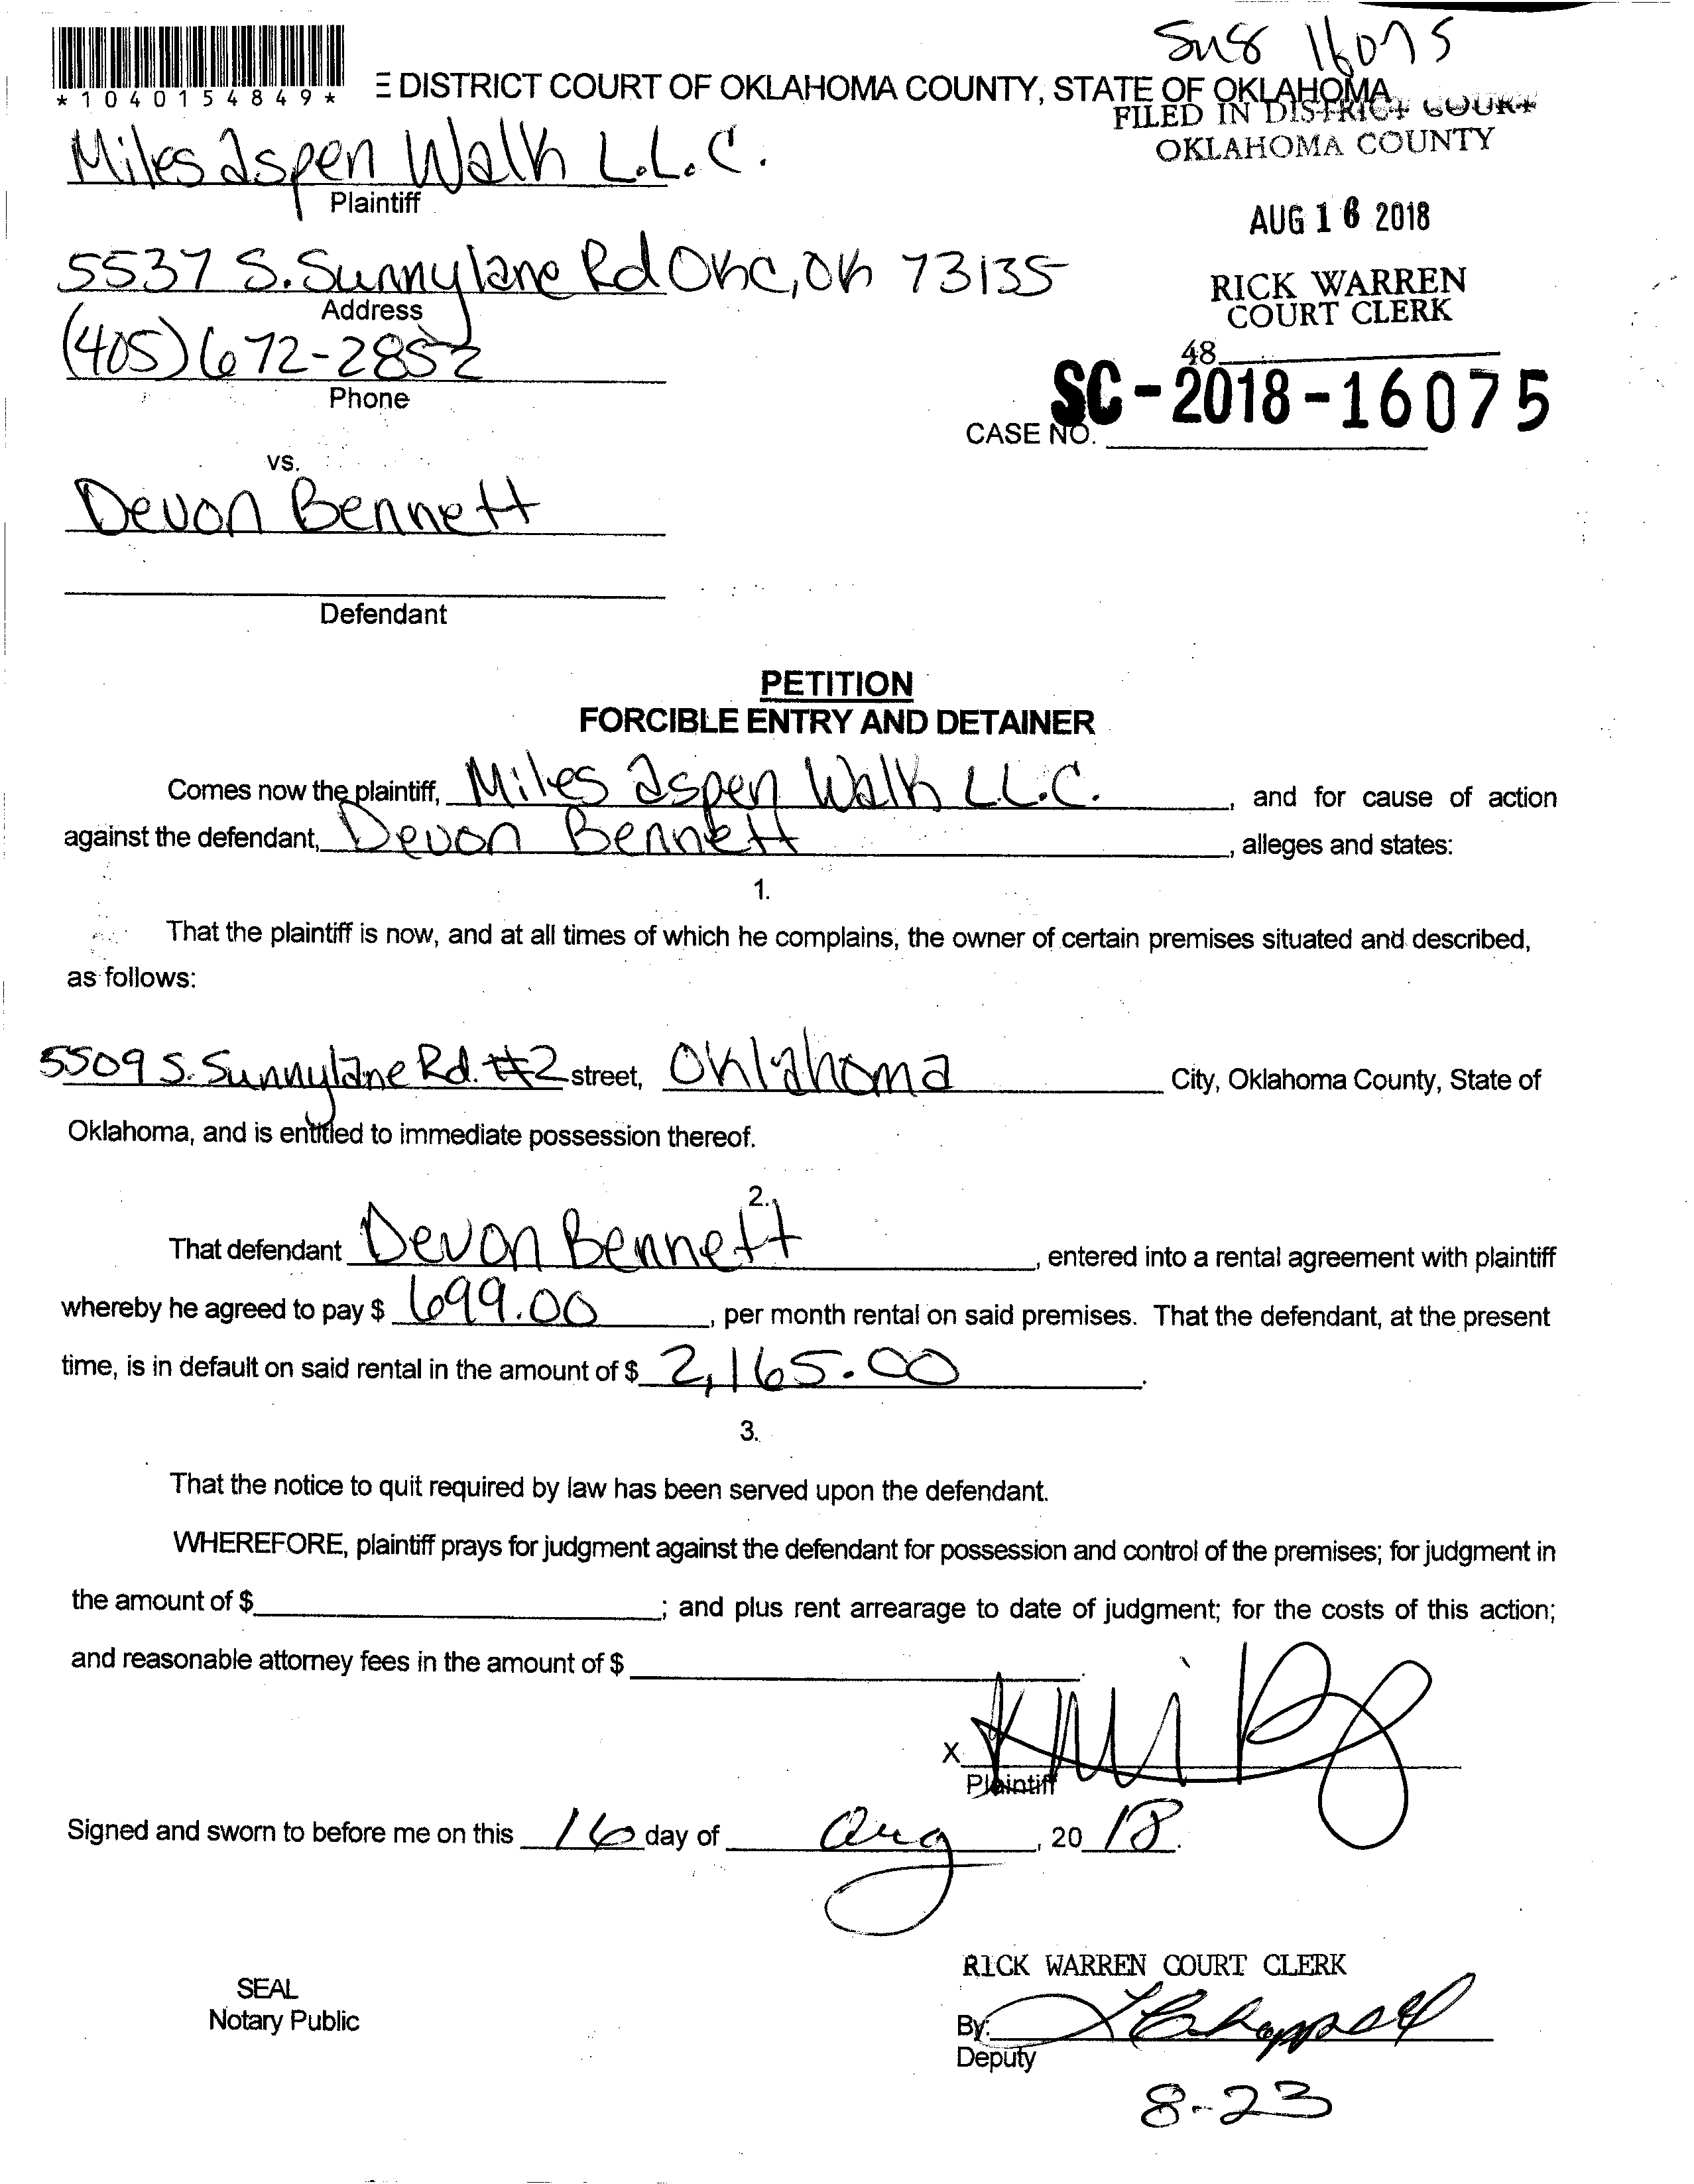 SMS 16075
*1040154849*
E DISTRICT COURT OF OKLAHOMA COUNTY, STATE OF OKLAHOMA
FILED IN DISTRICT COURT
OKLAHOMA COUNTY
Miles aspen Walk L.L.C.
Plaintiff
AUG 16 2018
5537 S. Sunnylane Rd OKC, OK 73135
Address
RICK WARREN
COURT CLERK
(405) 672-2852
Phone
48
SC-2018-16075
CASE NO.
vs.
Devon Bennett
Defendant
PETITION
FORCIBLE ENTRY AND DETAINER
Comes now the plaintiff, Miles aspen Walk LL.C. , and for cause of action
against the defendant, Devon Bennett , alleges and states:
1.
That the plaintiff is now, and at all times of which he complains, the owner of certain premises situated and described,
as follows:
5509 S. Sunnylane Rd. #2 street, Oklahoma City, Oklahoma County, State of
Oklahoma, and is entitled to immediate possession thereof.
2.
That defendant Devon Bennett , entered into a rental agreement with plaintiff
whereby he agreed to pay $ 699.00 , per month rental on said premises. That the defendant, at the present
time, is in default on said rental in the amount of $ 2,165.00 .
3.
That the notice to quit required by law has been served upon the defendant.
WHEREFORE, plaintiff prays for judgment against the defendant for possession and control of the premises; for judgment in
the amount of $ ; and plus rent arrearage to date of judgment; for the costs of this action;
and reasonable attorney fees in the amount of $ .
X
Plaintiff
Signed and sworn to before me on this 16 day of Aug , 20 18.
RICK WARREN COURT CLERK
SEAL
Notary Public
By:
Deputy
8-23